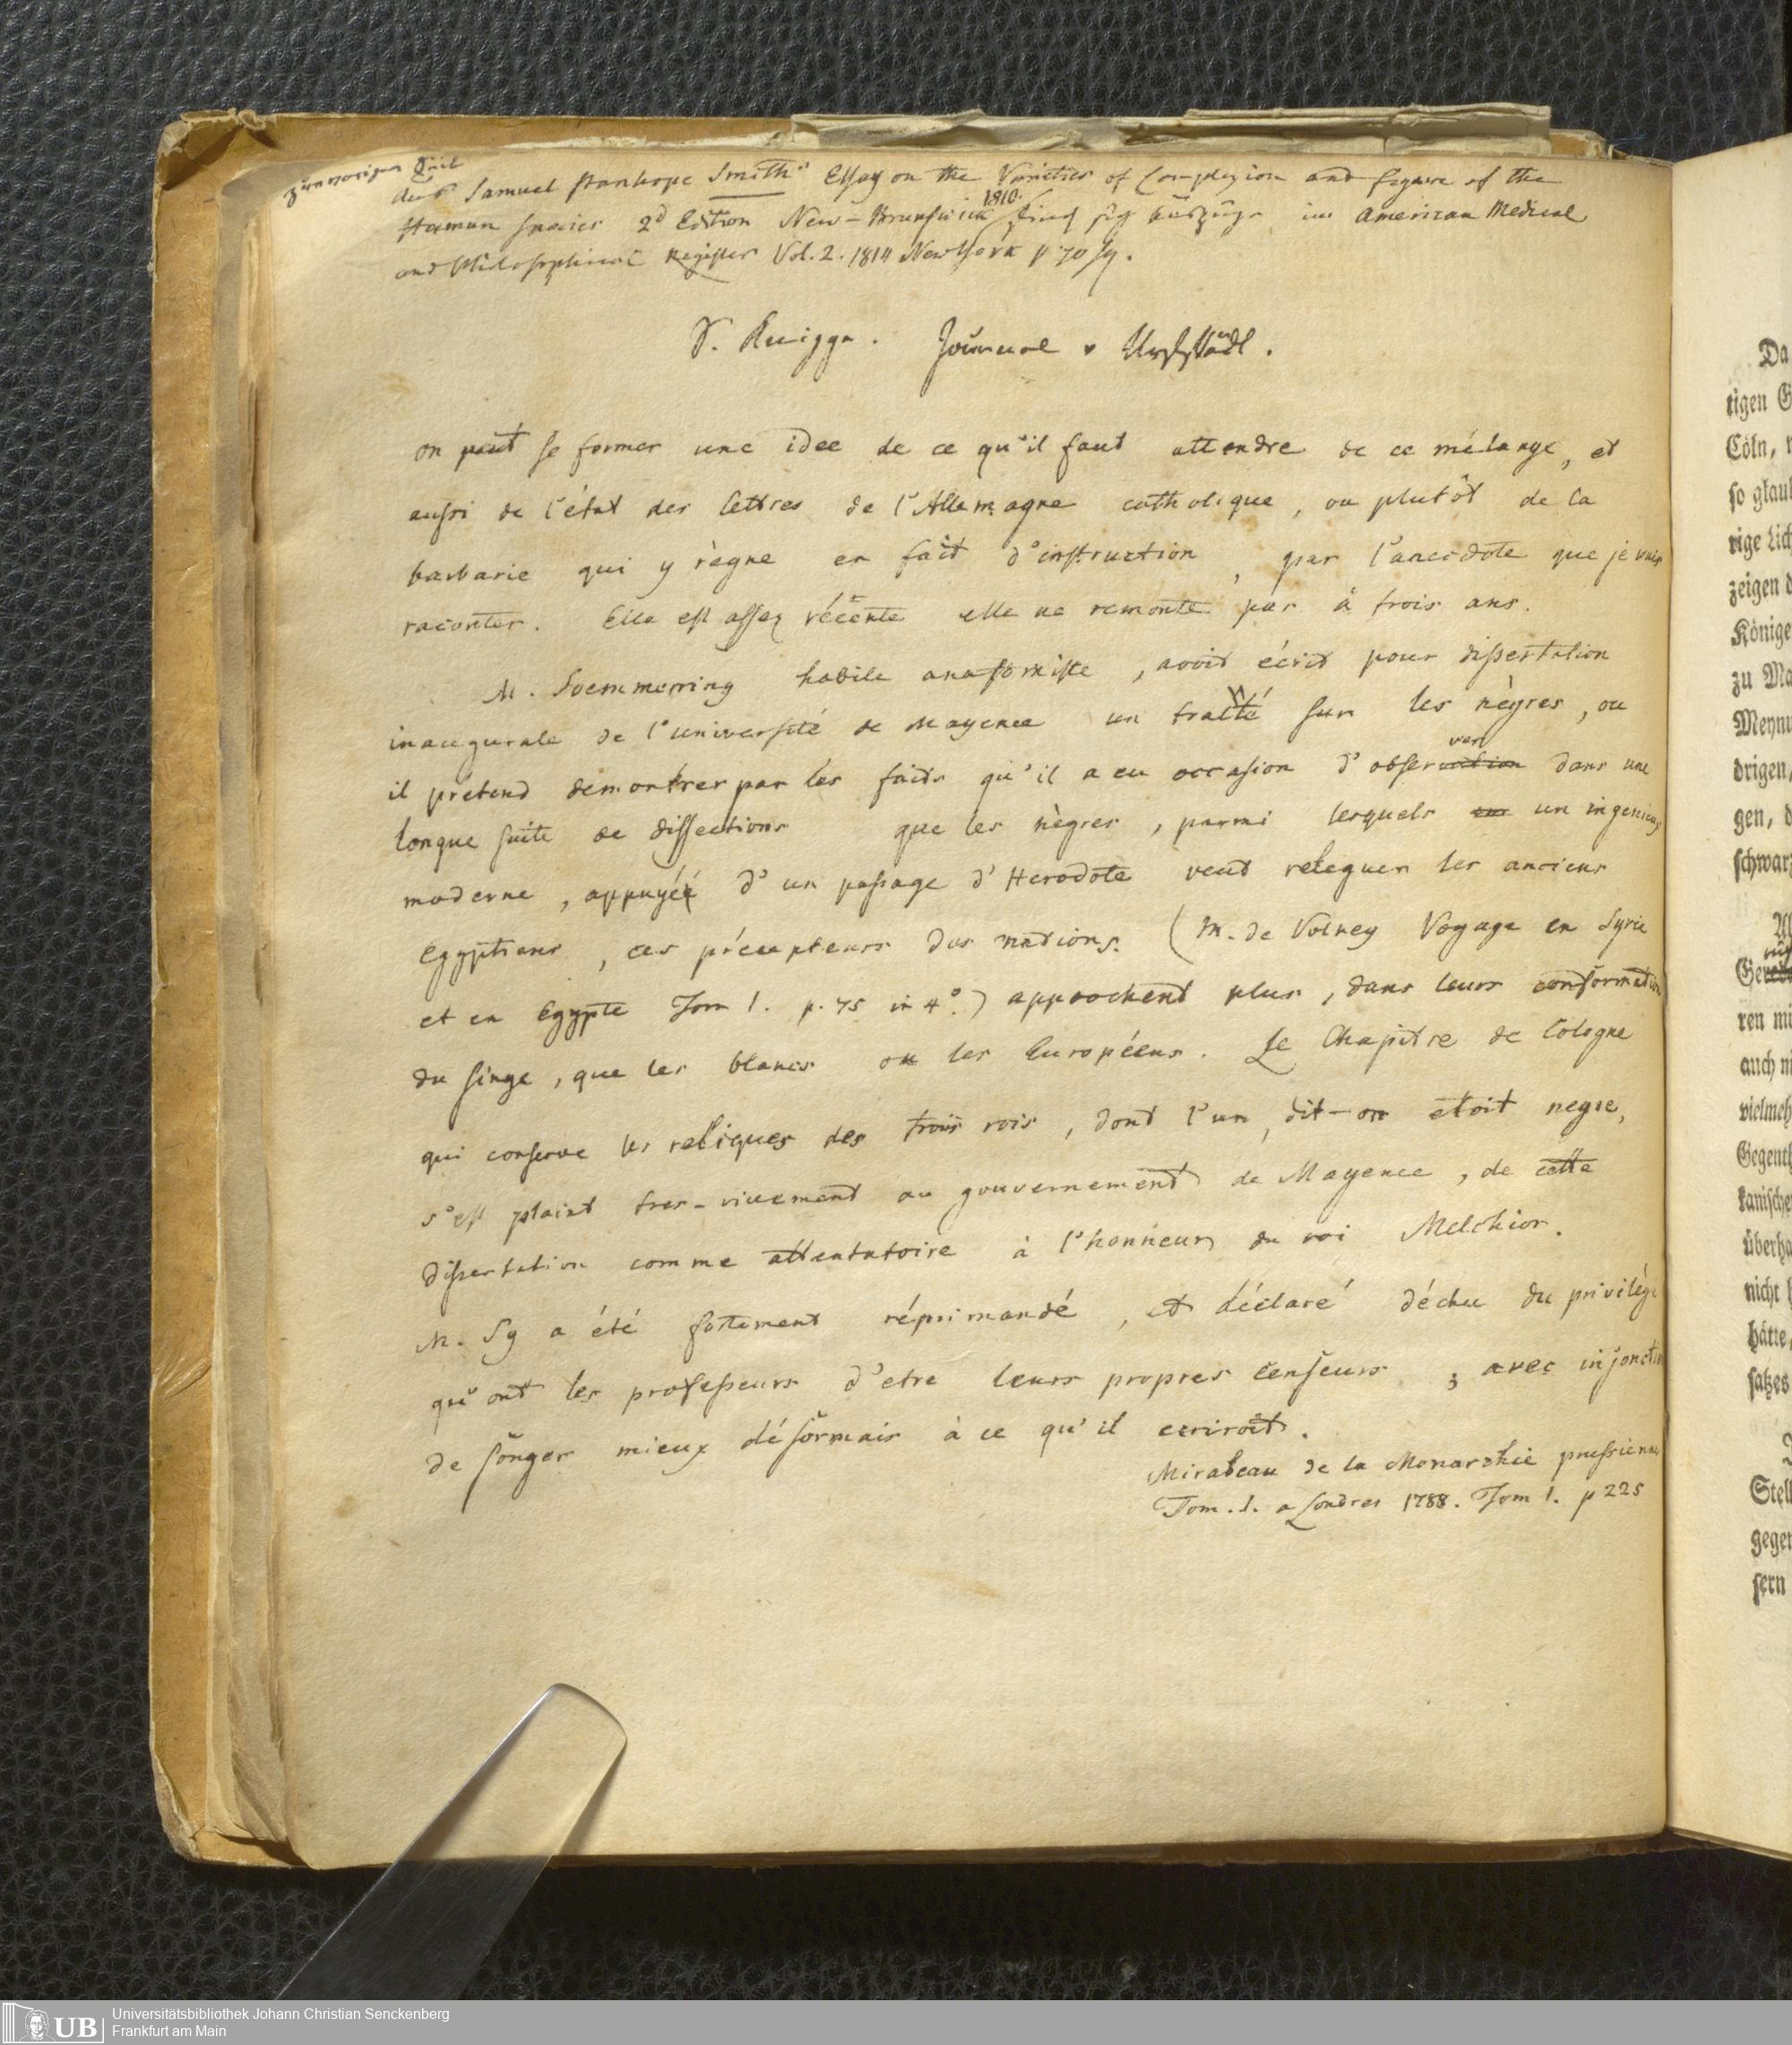 zur vorigen Seite
Aus Samuel Stanhope Smith's Essay on the Varieties of Complexion and figure of the
Human Species 2d Edition New-Brunswick 1810. sind Auszüge im American Medical
and Philosophical Register Vol. 2. 1814 New York p. 70 sq.
S. Knigge. Journal v
on peut se former une idee de ce qu'il faut attendre de ce mélange, et
aussi de l'état des lettres de l'Allemagne catholique, ou plutôt de la
barbarie qui y règne en fait d'instruction, par l'anecdote que je vais
raconter. Elle est assez récente elle ne remonte pas à trois ans.
M. Soemmerring habile anatomiste, avoit écrit pour dissertation
inaugurale de l'université de Mayence un traité sur les nègres, ou
il prétend demontrer par les faits qu'il a eu occasion d'observation ver dans une
longue suite de dissections que les nègres, parmi lesquels un ingenieux
moderne, appuyé d'un passage d'Herodote veut releguer les anciens
Egyptiens, ces précepteurs des nations. (M. de Volney Voyage en Syrie
et en Egypte Tom 1. p. 75 in 4°.) approchent plus, dans leurs conformation
du singe, que les blancs ou les Européens. Le Chapitre de Cologne
qui conserve les reliques des trois rois, dont l'un, dit-on etoit negre,
s'est plaint tres-vivement au gouvernement de Mayence, de cette
dissertation comme attentatoire à l'honneur du roi Melchior.
M. Sg a été fortement réprimandé, et déclaré déchu du privilége
qu'ont les professeurs d'etre leurs propres censeurs; avec injonction
de songer mieux désormais à ce qu'il ecriroit.
Mirabeau de la Monarchie prussienne
Tom. 1. a Londres 1788. Tom 1. p 225
Da
tigen G
Cöln,
so glaub
rige Lich
zeigen d
Könige
zu Ma
Meynu
drigen,
gen, d
schwarz
ren mi
auch ni
vielmeh
Gegenth
kanische
überha
nicht
hätte,
satzes
Stell
gegen
sern
UB Universitätsbibliothek Johann Christian Senckenberg
Frankfurt am Main